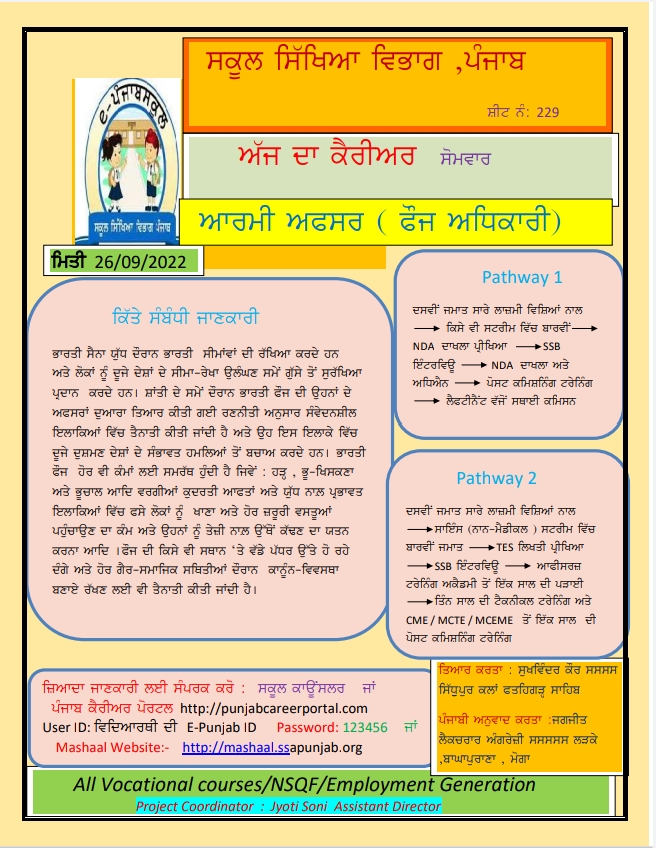 ਸਕੂਲ ਸਿੱਖਿਆ ਵਿਭਾਗ ,ਪੰਜਾਬ
ਸ਼ੀਟ ਨੰ: 229
ਈ-ਪੰਜਾਬਸਕੂਲ
ਸਕੂਲ ਸਿੱਖਿਆ ਵਿਭਾਗ ਪੰਜਾਬ
ਅੱਜ ਦਾ ਕੈਰੀਅਰ ਸੋਮਵਾਰ
ਆਰਮੀ ਅਫਸਰ ( ਫੌਜ ਅਧਿਕਾਰੀ)
ਮਿਤੀ 26/09/2022
ਕਿੱਤੇ ਸੰਬੰਧੀ ਜਾਣਕਾਰੀ
ਭਾਰਤੀ ਸੈਨਾ ਯੁੱਧ ਦੌਰਾਨ ਭਾਰਤੀ ਸੀਮਾਂਵਾਂ ਦੀ ਰੱਖਿਆ ਕਰਦੇ ਹਨ
ਅਤੇ ਲੋਕਾਂ ਨੂੰ ਦੂਜੇ ਦੇਸ਼ਾਂ ਦੇ ਸੀਮਾ-ਰੇਖਾ ਉਲੰਘਣ ਸਮੇਂ ਗੁੱਸੇ ਤੋਂ ਸੁਰੱਖਿਆ
ਪ੍ਰਦਾਨ ਕਰਦੇ ਹਨ। ਸ਼ਾਂਤੀ ਦੇ ਸਮੇਂ ਦੌਰਾਨ ਭਾਰਤੀ ਫੌਜ ਦੀ ਉਹਨਾਂ ਦੇ
ਅਫਸਰਾਂ ਦੁਆਰਾ ਤਿਆਰ ਕੀਤੀ ਗਈ ਰਣਨੀਤੀ ਅਨੁਸਾਰ ਸੰਵੇਦਨਸ਼ੀਲ
ਇਲਾਕਿਆਂ ਵਿੱਚ ਤੈਨਾਤੀ ਕੀਤੀ ਜਾਂਦੀ ਹੈ ਅਤੇ ਉਹ ਇਸ ਇਲਾਕੇ ਵਿੱਚ
ਦੂਜੇ ਦੁਸ਼ਮਣ ਦੇਸ਼ਾਂ ਦੇ ਸੰਭਾਵਤ ਹਮਲਿਆਂ ਤੋਂ ਬਚਾਅ ਕਰਦੇ ਹਨ। ਭਾਰਤੀ
ਫੌਜ ਹੋਰ ਵੀ ਕੰਮਾਂ ਲਈ ਸਮਰੱਥ ਹੁੰਦੀ ਹੈ ਜਿਵੇਂ : ਹੜ੍ਹ , ਭੂ-ਖਿਸਕਣਾ
ਅਤੇ ਭੂਚਾਲ ਆਦਿ ਵਰਗੀਆਂ ਕੁਦਰਤੀ ਆਫਤਾਂ ਅਤੇ ਯੁੱਧ ਨਾਲ਼ ਪ੍ਰਭਾਵਤ
ਇਲਾਕਿਆਂ ਵਿੱਚ ਫਸੇ ਲੋਕਾਂ ਨੂੰ ਖਾਣਾ ਅਤੇ ਹੋਰ ਜ਼ਰੂਰੀ ਵਸਤੂਆਂ
ਪਹੁੰਚਾਉਣ ਦਾ ਕੰਮ ਅਤੇ ਉਹਨਾਂ ਨੂੰ ਤੇਜ਼ੀ ਨਾਲ਼ ਉੱਥੋਂ ਕੱਢਣ ਦਾ ਯਤਨ
ਕਰਨਾ ਆਦਿ ।ਫੌਜ ਦੀ ਕਿਸੇ ਵੀ ਸਥਾਨ 'ਤੇ ਵੱਡੇ ਪੱਧਰ ਉੱਤੇ ਹੋ ਰਹੇ
ਦੰਗੇ ਅਤੇ ਹੋਰ ਗੈਰ-ਸਮਾਜਿਕ ਸਥਿਤੀਆਂ ਦੌਰਾਨ ਕਾਨੂੰਨ-ਵਿਵਸਥਾ
ਬਣਾਏ ਰੱਖਣ ਲਈ ਵੀ ਤੈਨਾਤੀ ਕੀਤੀ ਜਾਂਦੀ ਹੈ।
Pathway 1
ਦਸਵੀਂ ਜਮਾਤ ਸਾਰੇ ਲਾਜ਼ਮੀ ਵਿਸ਼ਿਆਂ ਨਾਲ
⟶ ਕਿਸੇ ਵੀ ਸਟਰੀਮ ਵਿੱਚ ਬਾਰਵੀਂ⟶
NDA ਦਾਖਲਾ ਪ੍ਰੀਖਿਆ ⟶SSB
ਇੰਟਰਵਿਊ ⟶ NDA ਦਾਖਲਾ ਅਤੇ
ਅਧਿਐਨ ⟶ ਪੋਸਟ ਕਮਿਸ਼ਨਿੰਗ ਟਰੇਨਿੰਗ
⟶ ਲੈਫਟੀਨੈਂਟ ਵੱਜੋਂ ਸਥਾਈ ਕਮਿਸਨ
Pathway 2
ਦਸਵੀਂ ਜਮਾਤ ਸਾਰੇ ਲਾਜ਼ਮੀ ਵਿਸ਼ਿਆਂ ਨਾਲ
⟶ਸਾਇੰਸ (ਨਾਨ-ਮੈਡੀਕਲ ) ਸਟਰੀਮ ਵਿੱਚ
ਬਾਰਵੀਂ ਜਮਾਤ ⟶TES ਲਿਖਤੀ ਪ੍ਰੀਖਿਆ
⟶SSB ਇੰਟਰਵਿਊ ⟶ ਆਫੀਸਰਜ਼
ਟਰੇਨਿੰਗ ਅਕੈਡਮੀ ਤੋਂ ਇੱਕ ਸਾਲ ਦੀ ਪੜਾਈ
⟶ਤਿੰਨ ਸਾਲ ਦੀ ਟੈਕਨੀਕਲ ਟਰੇਨਿੰਗ ਅਤੇ
CME / MCTE / MCEME ਤੋਂ ਇੱਕ ਸਾਲ ਦੀ
ਪੋਸਟ ਕਮਿਸ਼ਨਿੰਗ ਟਰੇਨਿੰਗ
ਜ਼ਿਆਦਾ ਜਾਣਕਾਰੀ ਲਈ ਸੰਪਰਕ ਕਰੋ : ਸਕੂਲ ਕਾਊਂਸਲਰ ਜਾਂ
ਪੰਜਾਬ ਕੈਰੀਅਰ ਪੋਰਟਲ http://punjabcareerportal.com
User ID: ਵਿਦਿਆਰਥੀ ਦੀ E-Punjab ID Password: 123456 ਜਾਂ
Mashaal Website:- http://mashaal.ssapunjab.org
ਤਿਆਰ ਕਰਤਾ : ਸੁਖਵਿੰਦਰ ਕੌਰ ਸਸਸਸ
ਸਿੱਧੂਪੁਰ ਕਲਾਂ ਫਤਹਿਗੜ੍ਹ ਸਾਹਿਬ
ਪੰਜਾਬੀ ਅਨੁਵਾਦ ਕਰਤਾ :ਜਗਜੀਤ
ਲੈਕਚਰਾਰ ਅੰਗਰੇਜ਼ੀ ਸਸਸਸਸ ਲੜਕੇ
,ਬਾਘਾਪੁਰਾਣਾ , ਮੋਗਾ
All Vocational courses/NSQF/Employment Generation
Project Coordinator : Jyoti Soni Assistant Director